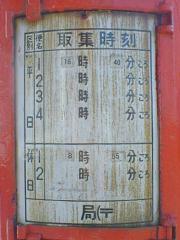 区別 便名 取集時刻
平日 1 16時 40分ごろ
2 時 分ごろ
3 時 分ごろ
4 時 分ごろ
休日 1 8時 55分ごろ
2 時 分ごろ
局〒